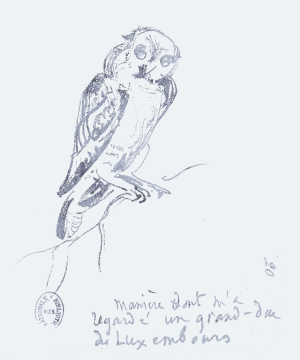 manière dont m'a
regardé un grand-duc
de Luxembourg